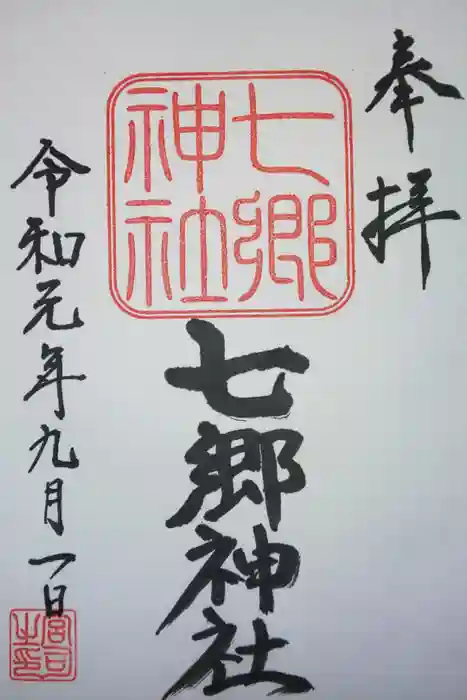 奉拝
七郷神社
七郷神社
令和元年九月一日
宮司之印